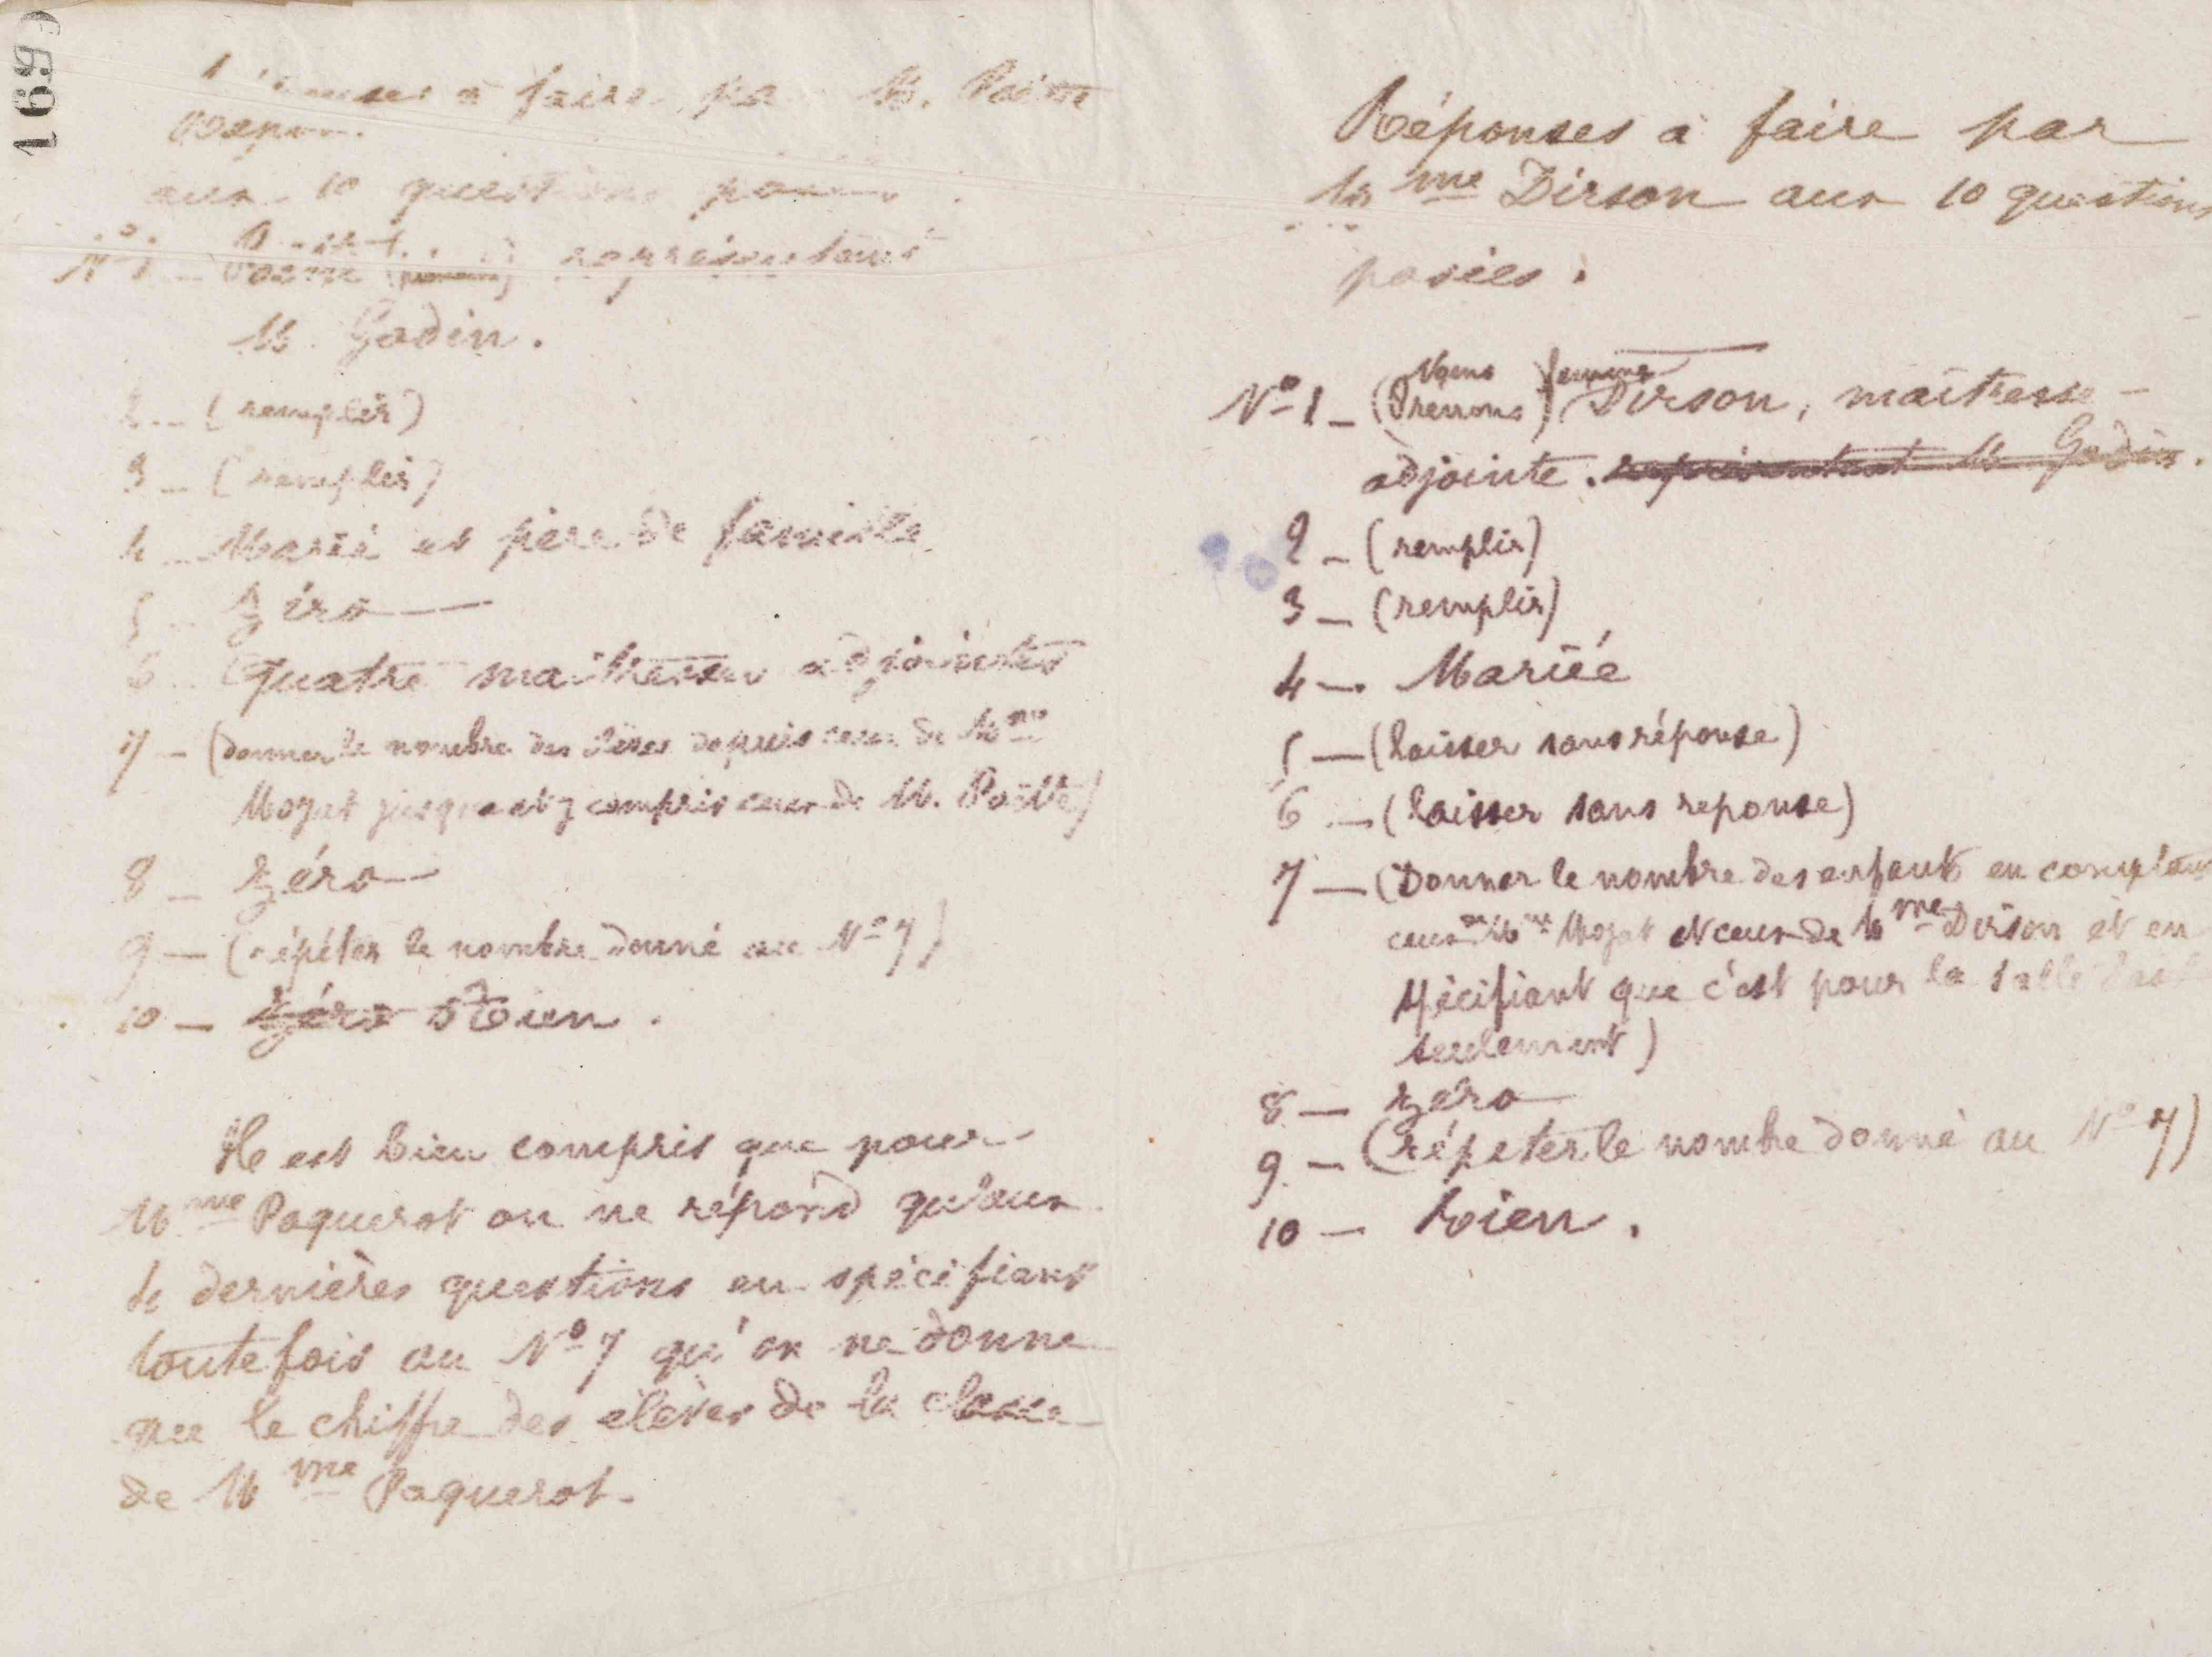 169
à faire M. Poëtte
aux 10 questions
N° 1 – Poëtte représentant
M. Godin.
2 – (remplir)
3 – (remplir)
4 – Marié et père de famille
5 – Zéro
6 – Quatre maîtresses adjointes
7 – (donner le nombre des élèves depuis ceux de Mme
Mojat jusque et y compris ceux de M. Poëtte)
8 – Zéro
9 – (répéter le nombre donné au N° 7)
10 – Zéro Rien.
Il est bien compris que pour
Mme Paquerot on ne répond qu'aux
4 dernières questions en spécifiant
toutefois au N° 7 qu'on ne donne
que le chiffre des élèves de la classe
de Mme Paquerot.
Réponses à faire par
Mme Dirson aux 10 questions
posées.
Noms femme
N° 1 – (Prenoms) Dirson, maîtresse-
adjointe. représentant M. Godin.
2 – (remplir)
3 – (remplir)
4 – Mariée
5 – (laisser sans réponse)
6 – (laisser sans reponse)
7 – (Donner le nombre des enfants en comptant
ceux de Mme Mojat et ceux de Mme Dirson et en
spécifiant que c'est pour la salle
seulement)
8 – Zéro
9 – (répeter le nombre donné au N° 7)
10 – Rien.